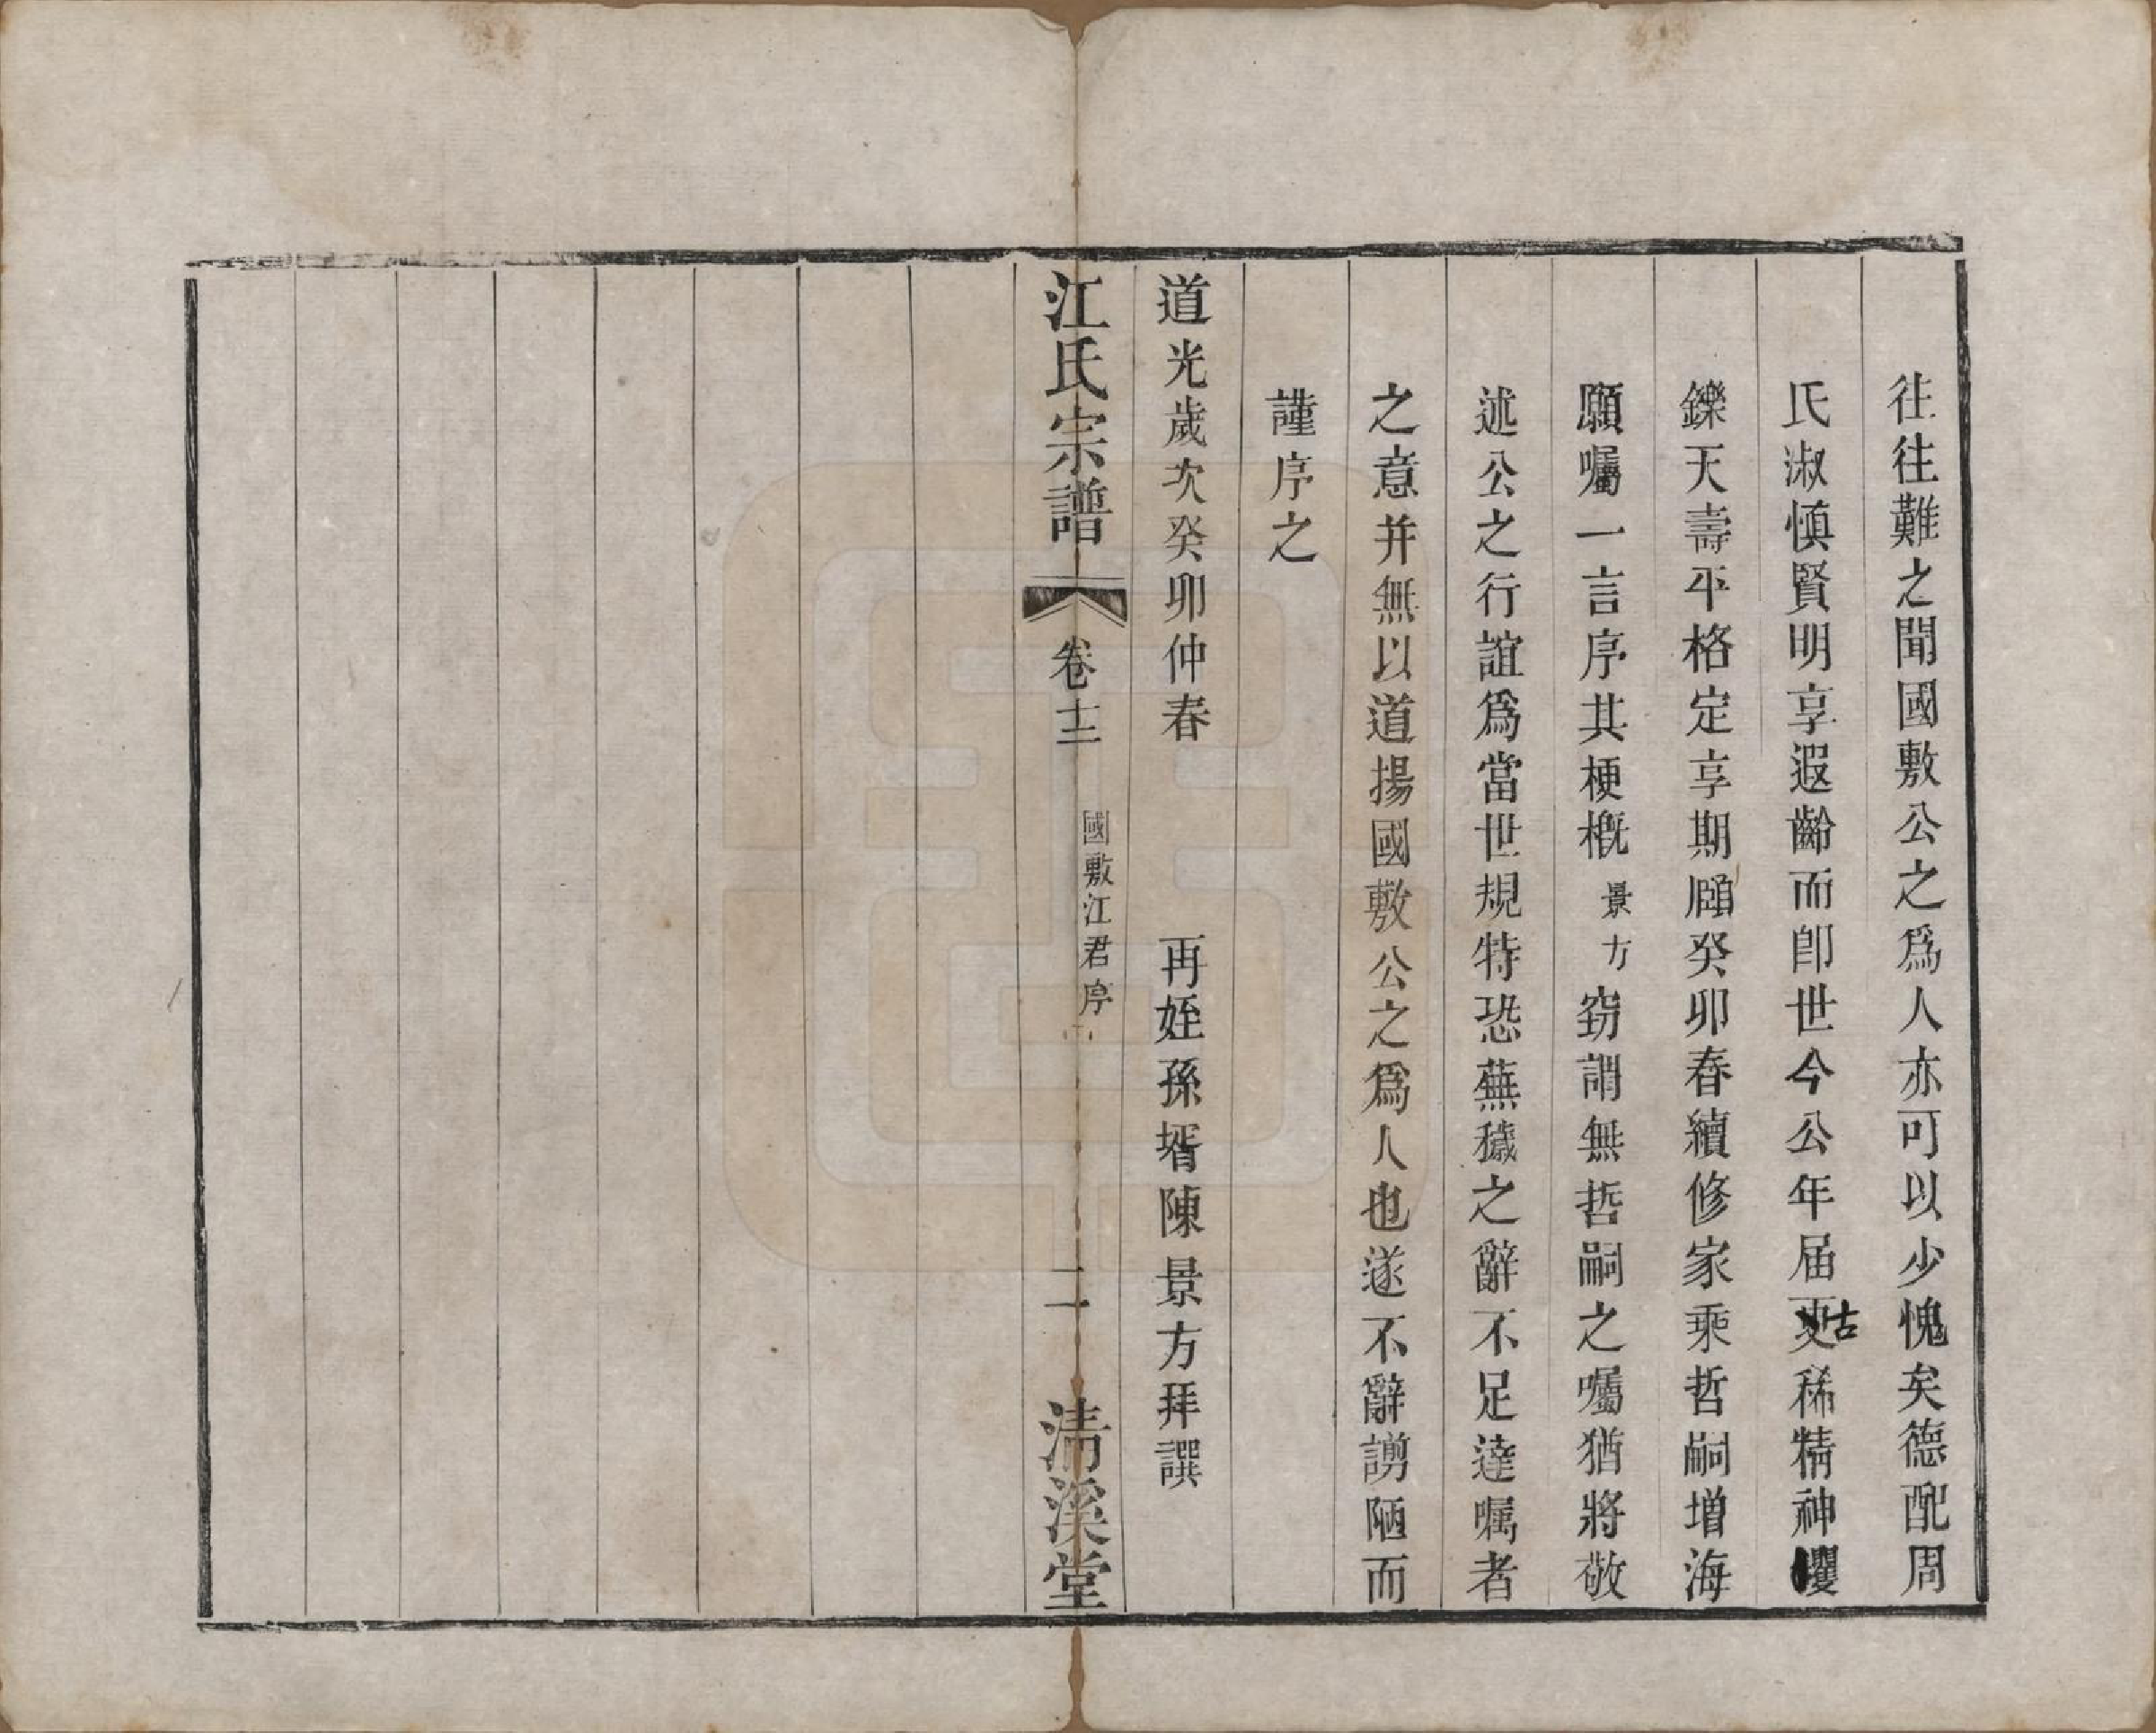 往往難之聞國敷公之爲人亦可以少愧矣德配周
氏淑慎賢明享遐齡而卽世今公年届古稀精神矍
鑠天壽平格定享期頤癸卯春續修家乘哲嗣增海
願囑一言序其梗概景方窃謂無哲嗣之囑猶將敬
述公之行誼爲當世規特恐蕪穢之辭不足達囑者
之意并無以道揚國敷公之爲人也遂不辭謭陋而
謹序之
道光歲次癸卯仲春 再姪孫壻陳景方拜譔
江氏宗譜 卷十二 國敷江君序 二 清溪堂